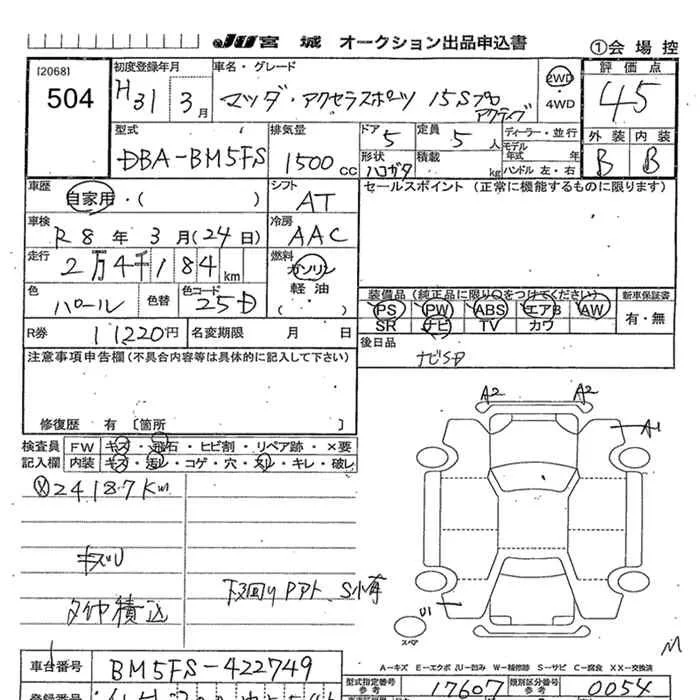 JU 宮城 オークション出品申込書 ①会場控
[2068]
504
初度登録年月
H31年 3月
車名・グレード
マツダ・アクセラスポーツ 15Sプロ
アクティブ
2WD
・
4WD
評価点
4.5
型式
DBA-BM5FS
排気量
1500cc
ドア
5
定員
5人
形状
ハコガタ
積載
kg
ディーラー・並行
モデル年式 年
ハンドル 左・右
外装 内装
B B
車歴
自家用・( )
シフト
AT
セールスポイント (正常に機能するものに限ります)
車検
R8年 3月(24日)
冷房
AAC
走行
2万4千184km
燃料
ガソリン
軽油
( ・ )
色
パール
色替
色コード
25D
装備品 (純正品に限り○をつけてください)
新車保証書
PS PW ABS エアB AW
SR ナビ TV カワ
有・無
R券
11220円
名変期限 月 日
後日品
ナビSD
注意事項申告欄(不具合内容等は具体的に記入して下さい)
修復歴 有 〔箇所 〕
A2 A2
A1
検査員
記入欄
FW キズ・飛石・ヒビ割・リペア跡・×要
内装 キズ・汚レ・コゲ・穴・スレ・キレ・破レ
24187Km
キズU
タイヤ積込
下回りPアト、S小有
U1
スペア
A-キズ E-エクボ JU-凹み W-補修跡 S-サビ C-腐食 XX-交換済
車台番号
BM5FS-422749
型式指定番号
参考
17607
類別区分番号
参考
0054
登録番号